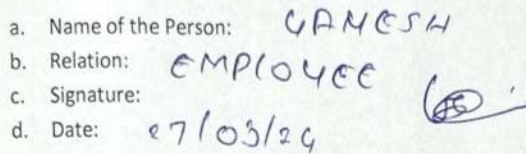 a. Name of the Person: GANESH
b. Relation: EMPLOYEE
c. Signature:
d. Date: 27/03/24